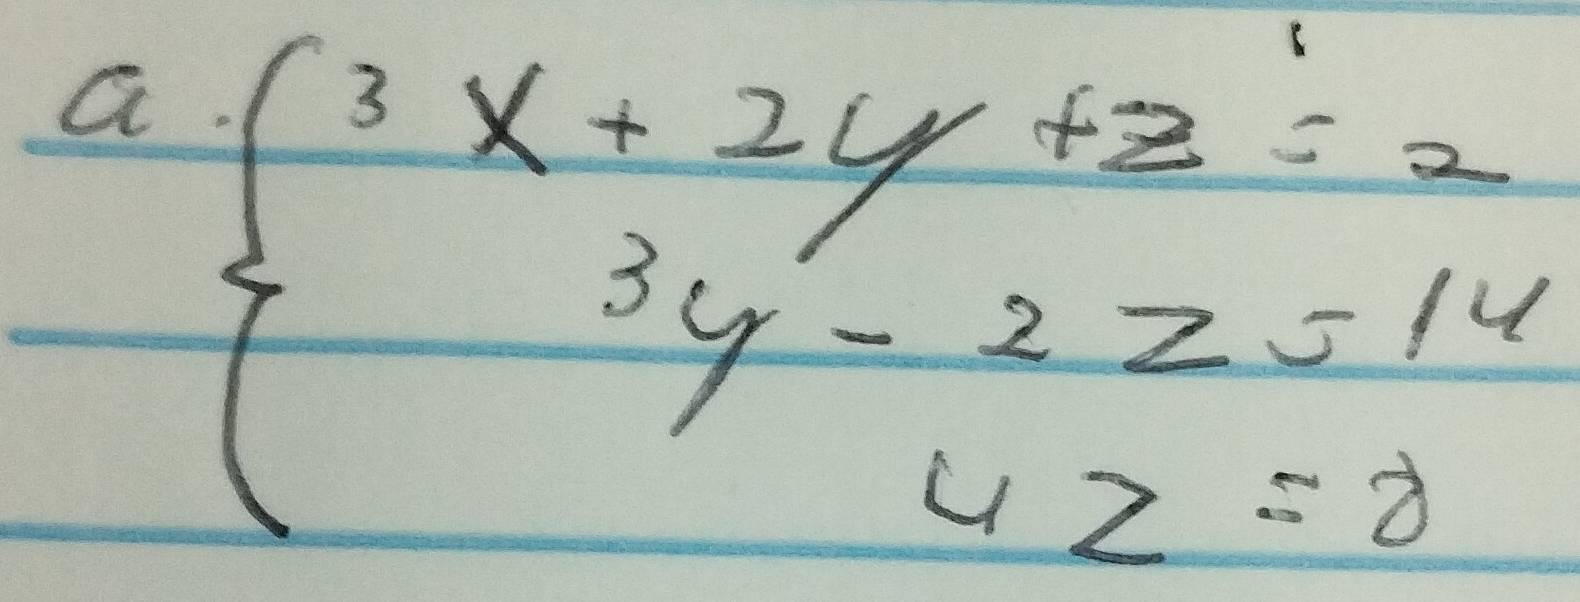 a. { 3x + 2y + z = 2
3y - 2z = 14
4z = 8